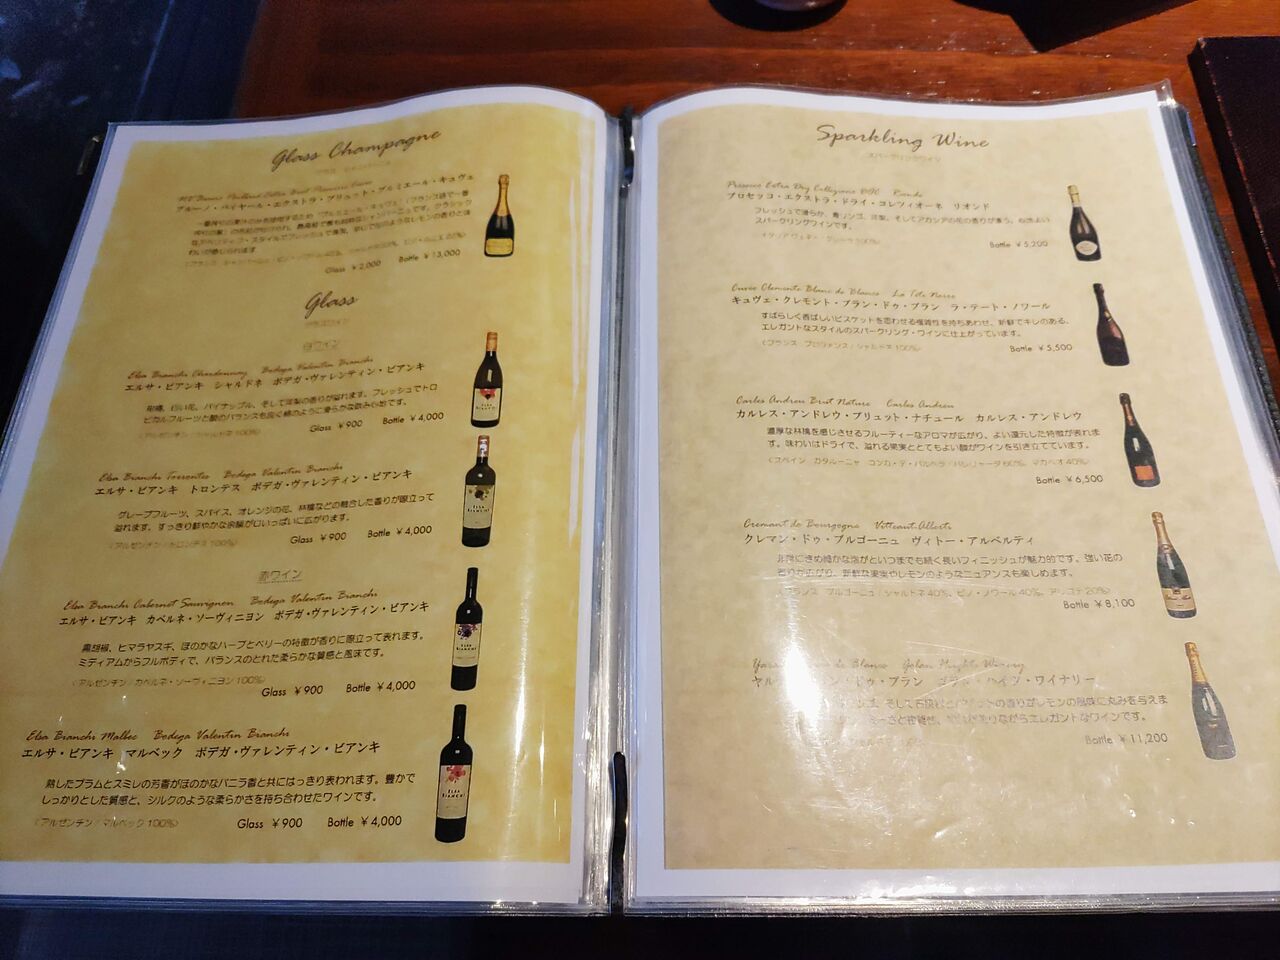 Glass Champagne
ブルーノ・パイヤール・エクストラ・ブリュット・プルミエール・キュヴェ
Glass ¥2,000 Bottle ¥13,000
Glass
グラスワイン
白ワイン
Elsa Bianchi Chardonnay Bodega Valentin Bianchi
エルサ・ビアンキ シャルドネ ボデガ・ヴァレンティン・ビアンキ
柑橘、白い花、パイナップル、そして洋梨の香りが溢れます。フレッシュでトロ
ピカルフルーツと酸のバランスも良く絹のように滑らかな飲み心地です。
〈アルゼンチン / シャルドネ 100%〉
Glass ¥900 Bottle ¥4,000
Elsa Bianchi Torrontes Bodega Valentin Bianchi
エルサ・ビアンキ トロンテス ボデガ・ヴァレンティン・ビアンキ
グレープフルーツ、スパイス、オレンジの花、林檎などの融合した香りが際立って
溢れます。すっきり鮮やかな余韻が口いっぱいに広がります。
〈アルゼンチン / トロンテス 100%〉
Glass ¥900 Bottle ¥4,000
赤ワイン
Elsa Bianchi Cabernet Sauvignon Bodega Valentin Bianchi
エルサ・ビアンキ カベルネ・ソーヴィニヨン ボデガ・ヴァレンティン・ビアンキ
黒胡椒、ヒマラヤスギ、ほのかなハーブとベリーの特徴が香りに際立って表れます。
ミディアムからフルボディで、バランスのとれた柔らかな質感と風味です。
〈アルゼンチン / カベルネ・ソーヴィニヨン 100%〉
Glass ¥900 Bottle ¥4,000
Elsa Bianchi Malbec Bodega Valentin Bianchi
エルサ・ビアンキ マルベック ボデガ・ヴァレンティン・ビアンキ
熟したプラムとスミレの芳香がほのかなバニラ香と共にはっきり表われます。豊かで
しっかりとした質感と、シルクのような柔らかさを持ち合わせたワインです。
〈アルゼンチン / マルベック 100%〉
Glass ¥900 Bottle ¥4,000
Sparkling Wine
スパークリングワイン
Prosecco Extra Dry Collezione DOC Riondo
プロセッコ・エクストラ・ドライ・コレツィオーネ リオンド
フレッシュで滑らか、青リンゴ、洋梨、そしてアカシアの花の香りが漂う、心地よい
スパークリングワインです。
Bottle ¥5,200
Cuvée Clemente Blanc de Blancs La Tête Noire
キュヴェ・クレモント・ブラン・ドゥ・ブラン ラ・テート・ノワール
すばらしく香ばしいビスケットを思わせる複雑性を持ちあわせ、新鮮でキレのある、
エレガントなスタイルのスパークリング・ワインに仕上がっています。
〈フランス プロヴァンス / シャルドネ 100%〉
Bottle ¥5,500
Carles Andreu Brut Nature Carles Andreu
カルレス・アンドレウ・ブリュット・ナチュール カルレス・アンドレウ
濃厚な林檎を感じさせるフルーティーなアロマが広がり、よい還元した特徴が表れま
す。味わいはドライで、溢れる果実ととてもよい酸がワインを引き立てています。
〈スペイン カタルーニャ コンカ・デ・バルベラ / パレリャーダ 60%、マカベオ 40%〉
Bottle ¥6,500
Cremant de Bourgogne Vitteaut-Alberti
クレマン・ドゥ・ブルゴーニュ ヴィトー・アルベルティ
非常にきめ細かな泡がといつまでも続く長いフィニッシュが魅力的です。強い花の
香りが広がり、新鮮な果実やレモンのようなニュアンスも楽しめます。
〈フランス ブルゴーニュ / シャルドネ 40%、ピノ・ノワール 40%、アリゴテ 20%〉
Bottle ¥8,100
Blancs Golan Heights Winery
ドゥ・ブラン ゴラン・ハイツ・ワイナリー
香りがレモンの風味に丸みを与えま
ながらエレガントなワインです。
Bottle ¥11,200